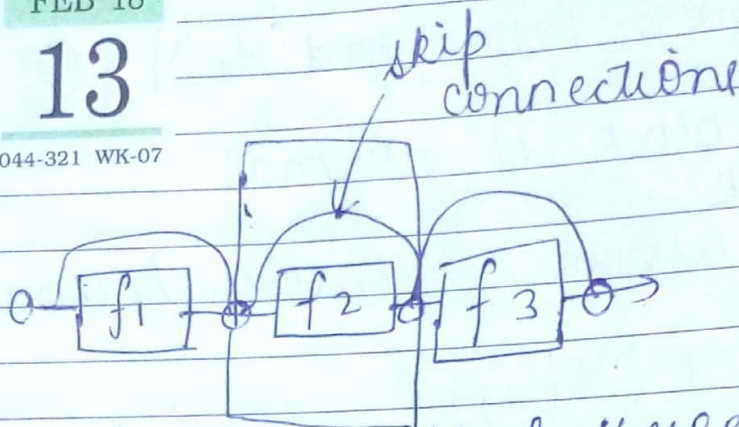 FEB 18
13
044-321 WK-07
skip
connections
f1 f2 f3